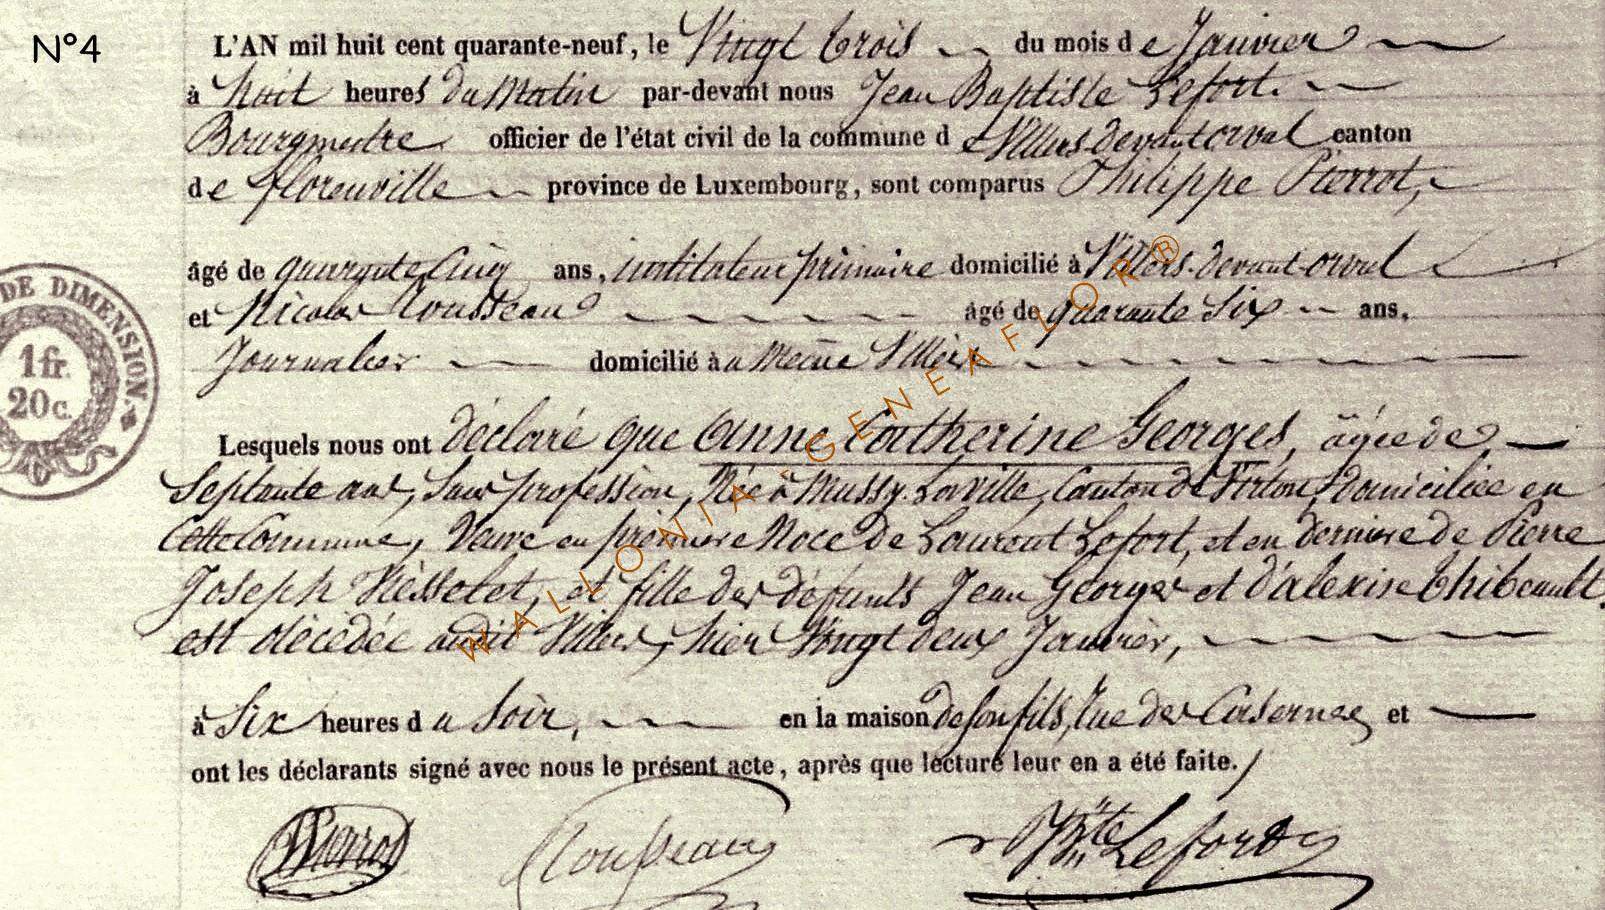 N°4
L'AN mil huit cent quarante-neuf, le Vingt trois du mois de Janvier
à huit heures du Matin par-devant nous Jean Baptiste Lefort.
Bourgmestre officier de l'état civil de la commune de Villers devant orval canton
de florenville province de Luxembourg, sont comparus Philippe Pierrot,
âgé de quarante Cinq ans, instituteur primaire domicilié à Villers-devant-orval
et Nicolas Rousseau âgé de quarante Six ans,
Journalier domicilié au Même Villers
Lesquels nous ont déclaré que Anne Catherine Georges, âgée de
Septante ans, Sans profession, Née à Mussy-Laville, Canton de Virton, Domiciliée en
Cette Commune, Veuve en première Noce de Laurent Lefort, et en dernière de Pierre
Joseph Hesselet, et fille des défunts Jean Georges et d'alexise thibeault,
est décédée audit Villers, hier Vingt deux Janvier,
à Six heures du Soir, en la maison de son fils, Rue des Casernes et
ont les déclarants signé avec nous le présent acte, après que lecture leur en a été faite./
PPierrot Rousseau JBte Lefort
DE DIMENSION.
1 fr.
20 c.
WALLONIA-GENEAFLOR®